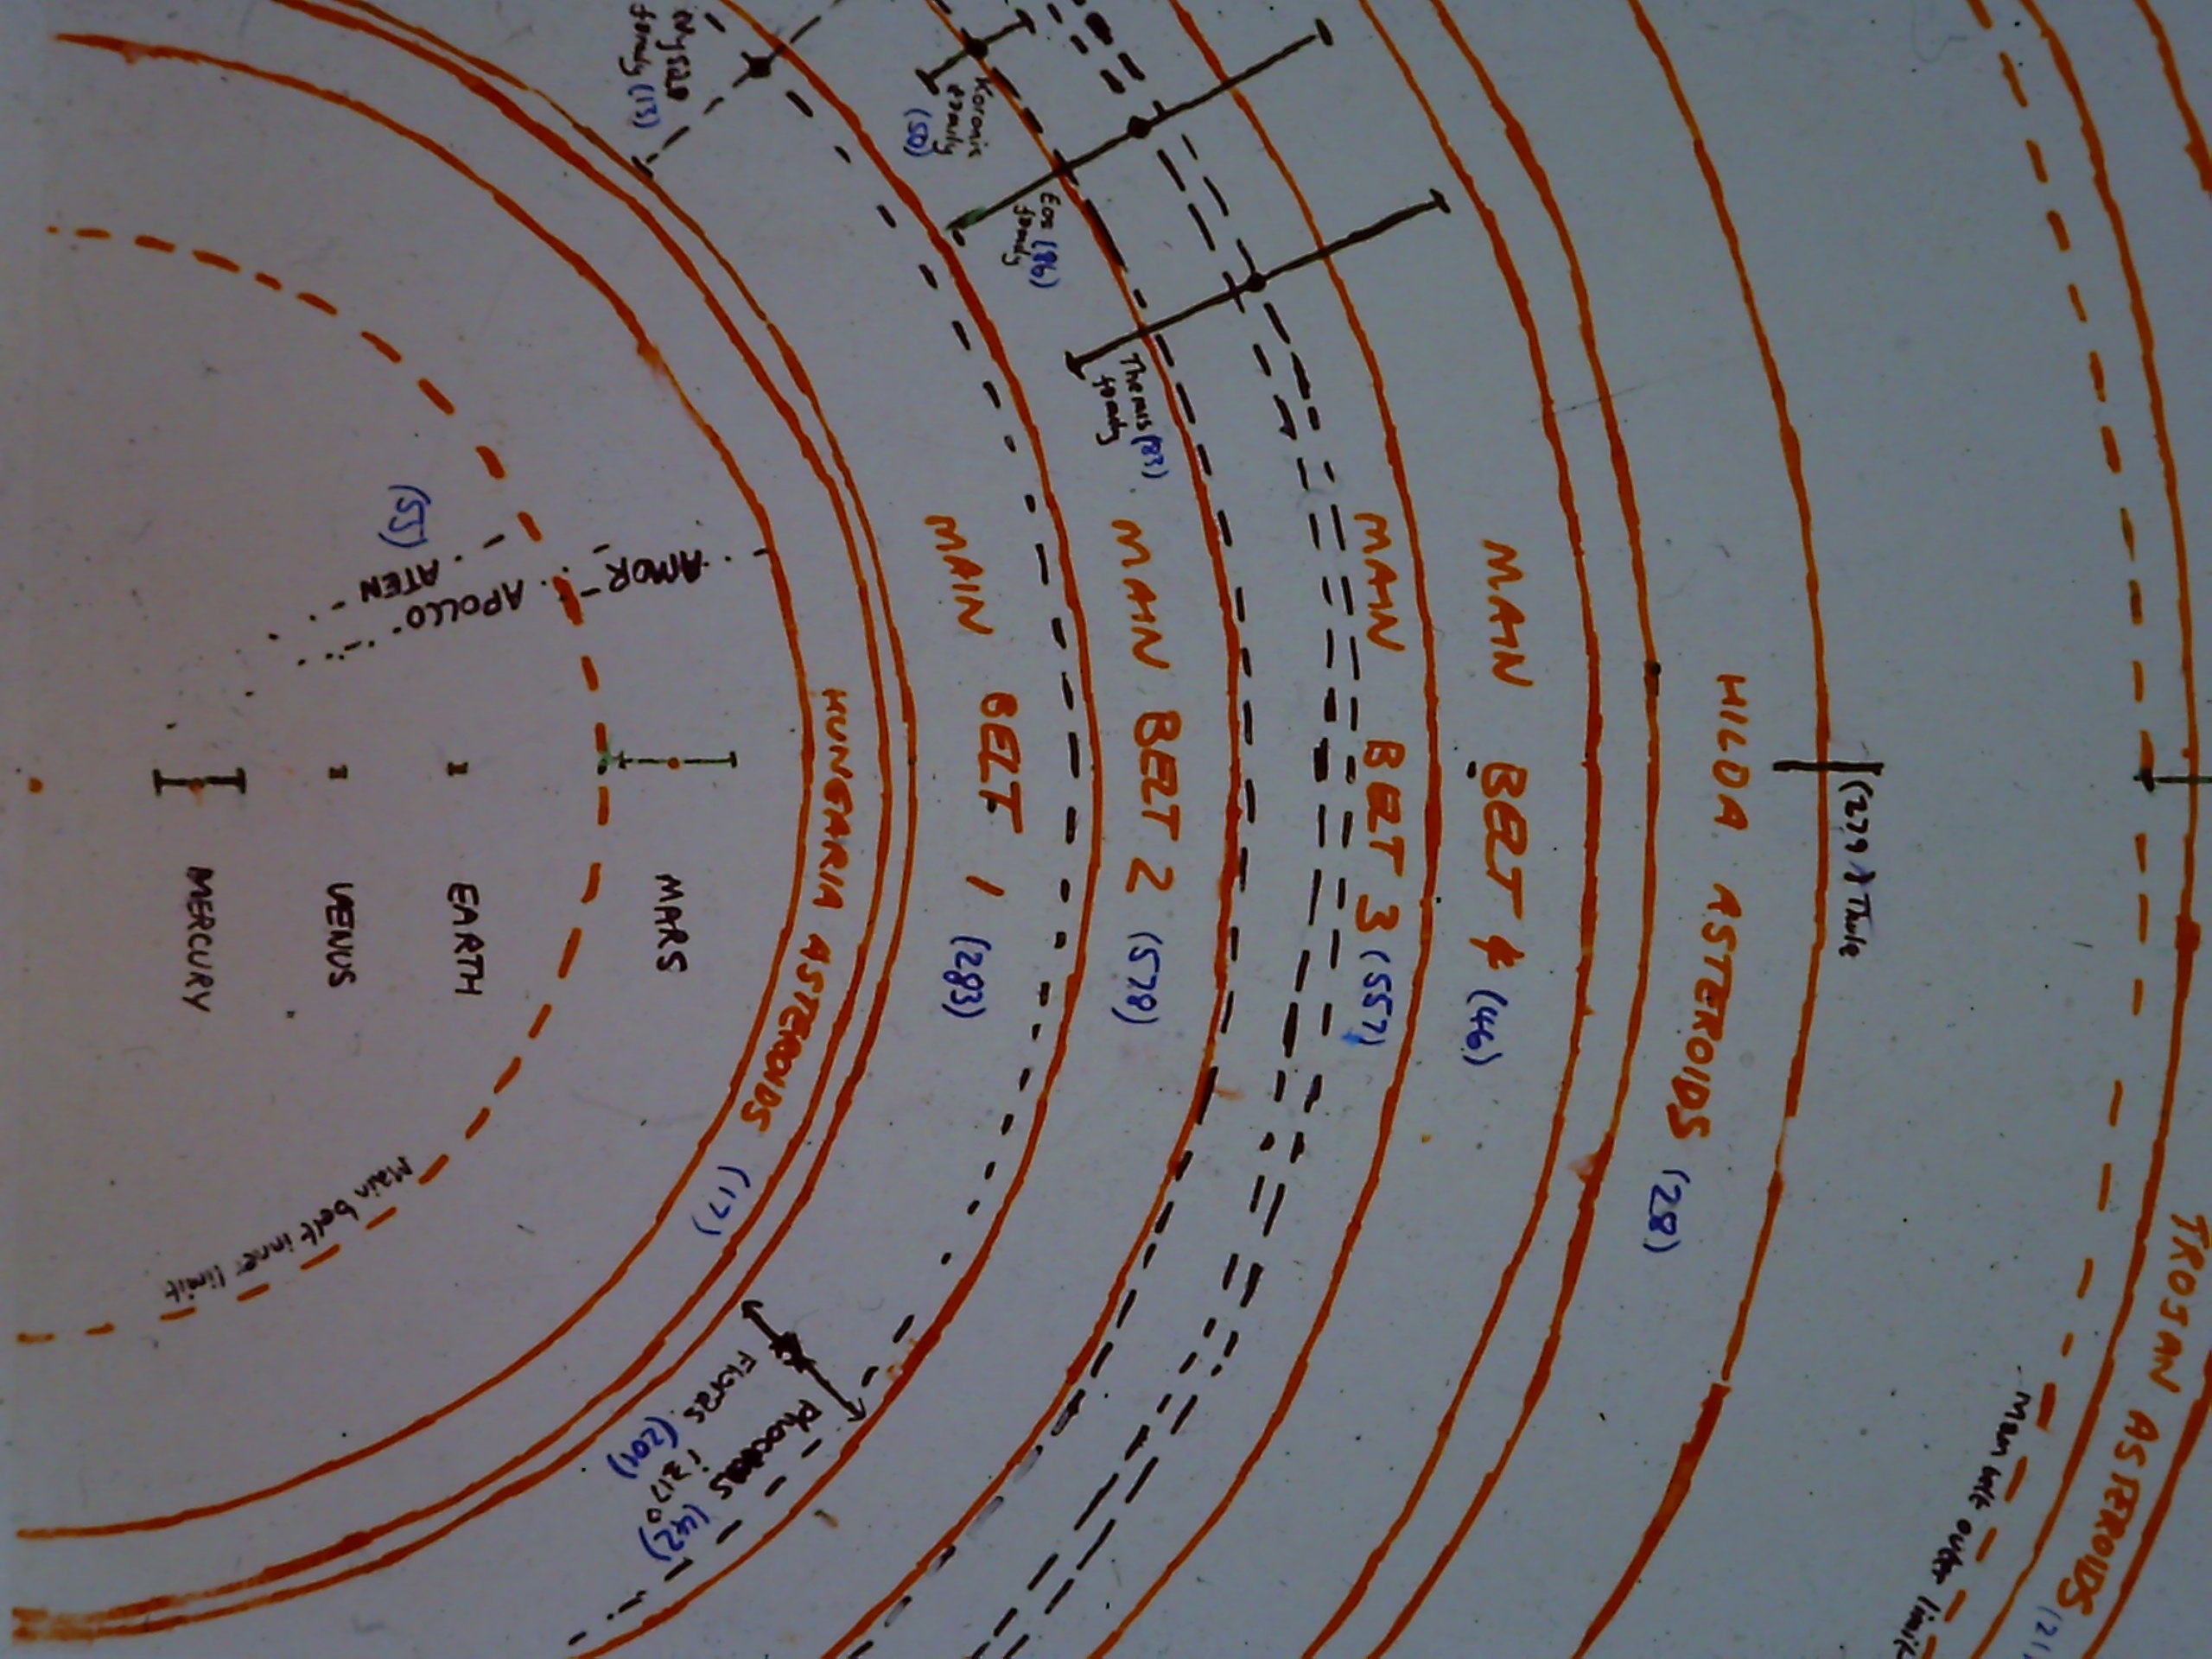 Nysa
family (13)
Koronis
family
(50)
Eos (86)
family
Themis (83)
family
(55)
ATEN
APOLLO
AMOR
MERCURY
VENUS
EARTH
MARS
Main belt inner limit
HUNGARIA ASTEROIDS (17)
MAIN BELT 1 (283)
MAIN BELT 2 (578)
MAIN BELT 3 (557)
MAIN BELT 4 (46)
HILDA ASTEROIDS (28)
(279) Thule
Floras (201)
Phocaeas (42)
TROJAN ASTEROIDS
Main belt outer limit